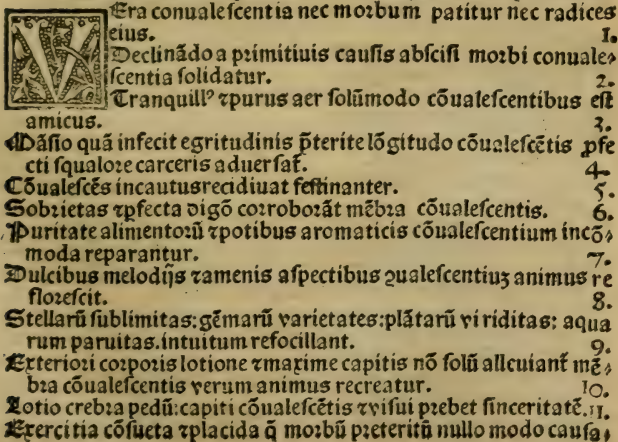 VEra conualeſcentia nec moꝛbum patitur nec radices
eius. 1.
Declinādo a pꝛimitiuis cauſis abſciſi moꝛbi conuale⸗
ſcentia ſolidatur. 2.
Tranquillꝰ ⁊purus aer ſolūmodo cōualeſcentibus eſt
amicus. 3.
Māſio quā infecit egritudinis p̄terite lōgitudo cōualeſcētis ꝑfe
cti ſqualoꝛe carceris aduerſat᷑. 4.
Cōualeſcēs incautusrecidiuat feſtinanter. 5.
Sobꝛietas ⁊ꝑfecta digō coꝛroboꝛāt mēbꝛa cōualeſcentis. 6.
Puritate alimentoꝛū ⁊potibus aromaticis cōualeſcentium incō⸗
moda reparantur. 7.
Dulcibus melodijs ⁊amenis aſpectibus ꝯualeſcentiuꝫ animus re
floꝛeſcit. 8.
Stellarū ſublimitas:gēmarū varietates:plātarū viriditas: aqua
rum paruitas.intuitum refocillant. 9.
Exterioꝛi coꝛpoꝛis lotione ⁊maxime capitis nō ſolū alleuiant᷑ mē⸗
bꝛa cōualeſcentis verum animus recreatur. 10.
Lotio crebꝛa pedū:capiti cōualeſcētis ⁊viſui pꝛebet ſinceritatē. 11.
Exercitia cōſueta ⁊placida q̄ moꝛbū pꝛeteritū nullo modo cauſa⸗